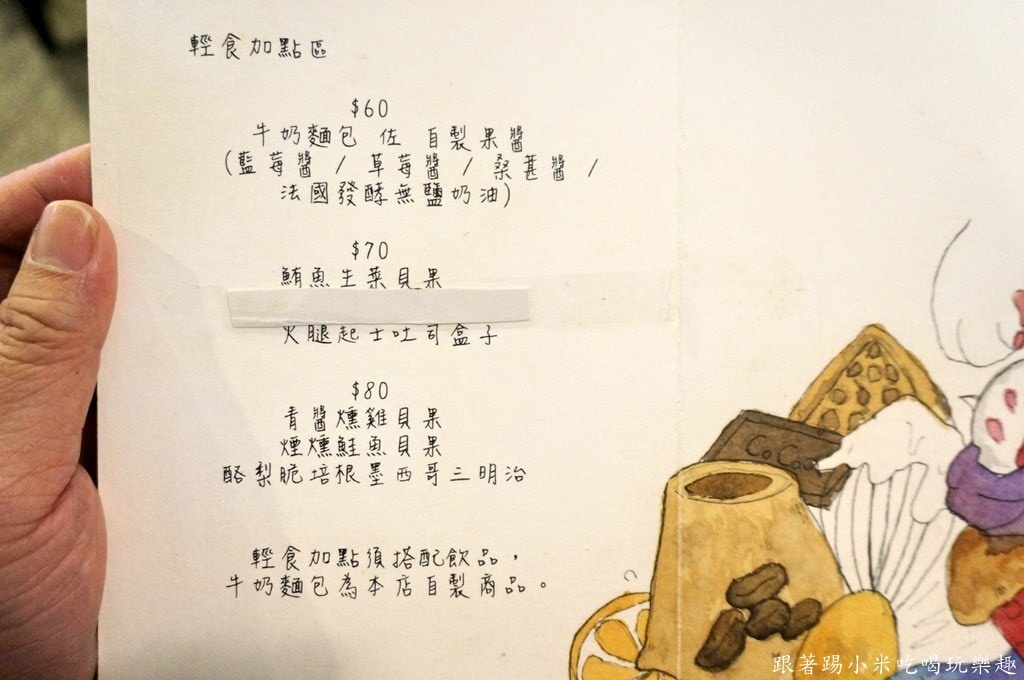 輕食加點區
$60
牛奶麵包 佐 自製果醬
(藍莓醬 / 草莓醬 / 桑葚醬 /
法國發酵無鹽奶油)
$70
鮪魚生菜貝果
火腿起士吐司盒子
$80
青醬燻雞貝果
煙燻鮭魚貝果
酪梨脆培根墨西哥三明治
輕食加點須搭配飲品，
牛奶麵包為本店自製商品。
CoCoa
跟著踢小米吃喝玩樂趣